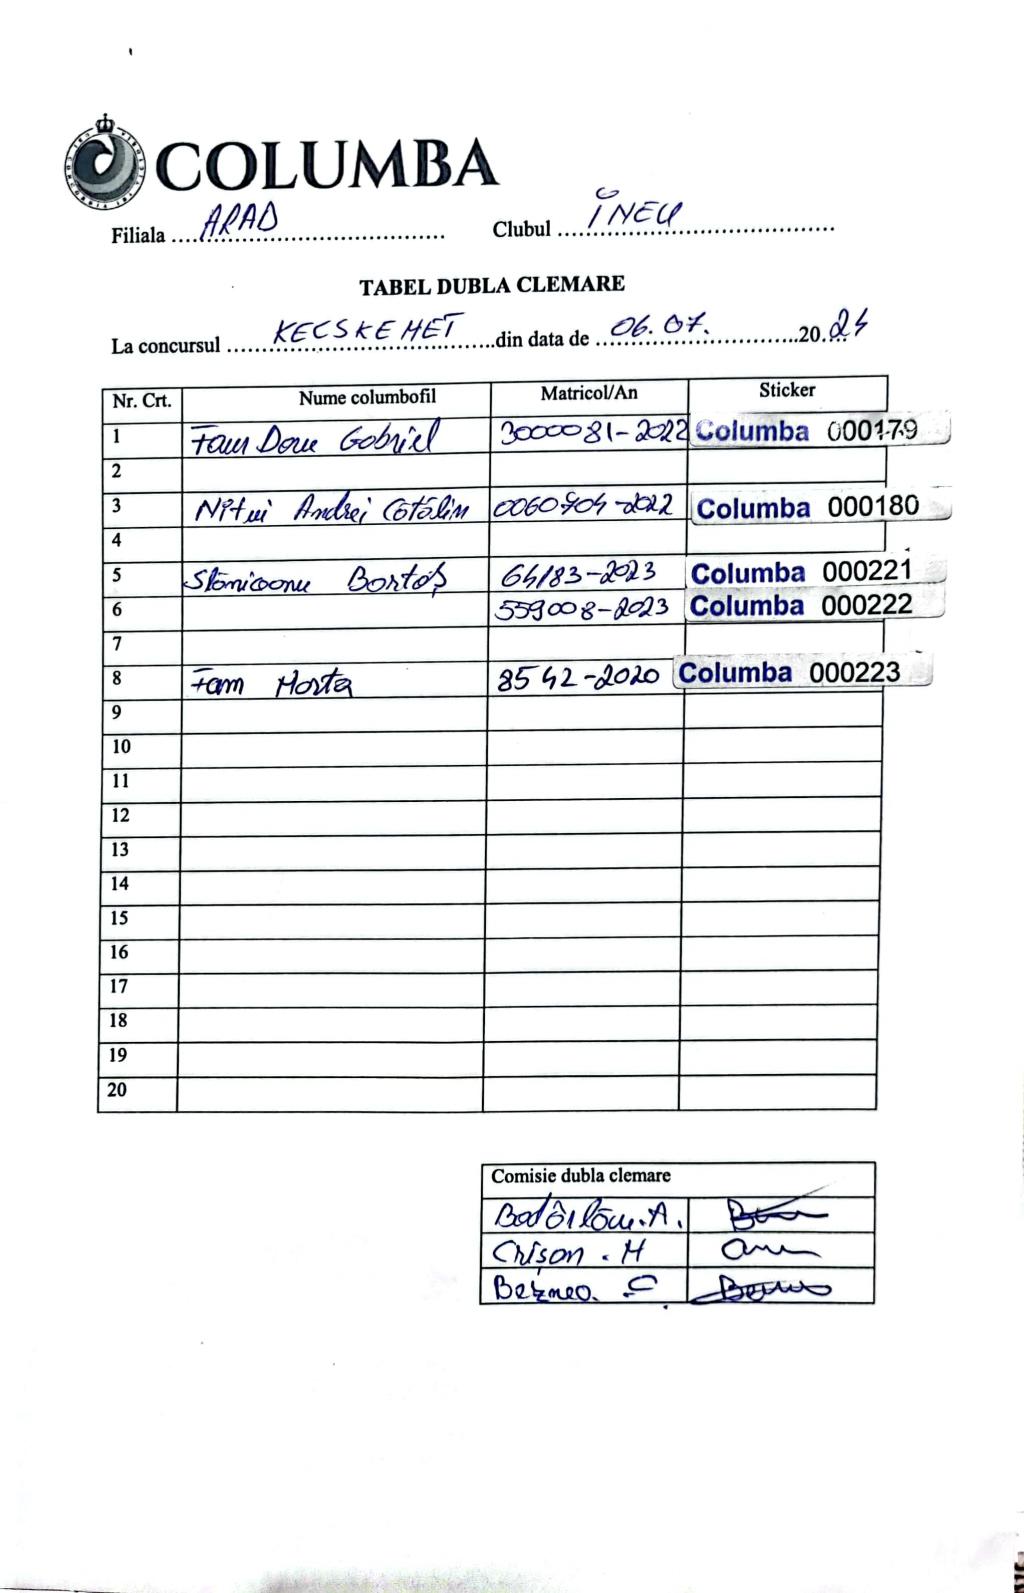 COLUMBA
Filiala ARAD Clubul ÎNEU
TABEL DUBLA CLEMARE
La concursul KECSKEMET din data de 06.07. 2024
Nr. Crt. Nume columbofil Matricol/An Sticker
1 Fam Gabriel 3000081-2022 Columba 000179
2
3 Nițui Andrei Cătălin 0060704-2022 Columba 000180
4
5 64183-2023 Columba 000221
6 559008-2023 Columba 000222
7
8 Fam 8542-2020 Columba 000223
9
10
11
12
13
14
15
16
17
18
19
20
Comisie dubla clemare
A.
Crișan . M
C